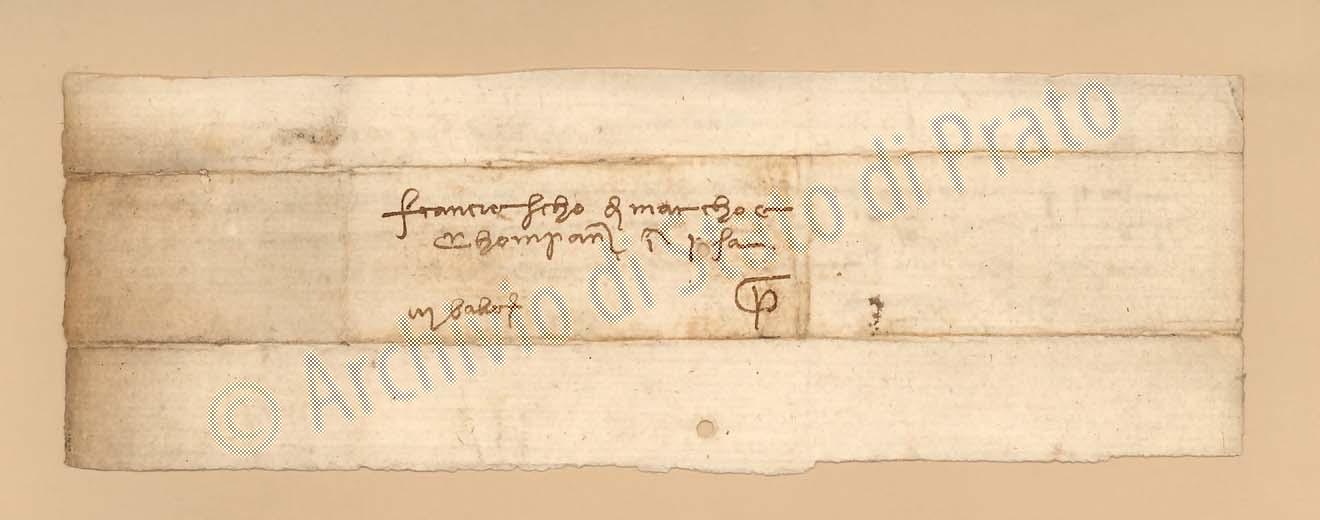 Franciescho di Marcho e
Chonpangni in Pisa
iii balle
© Archivio di Stato di Prato